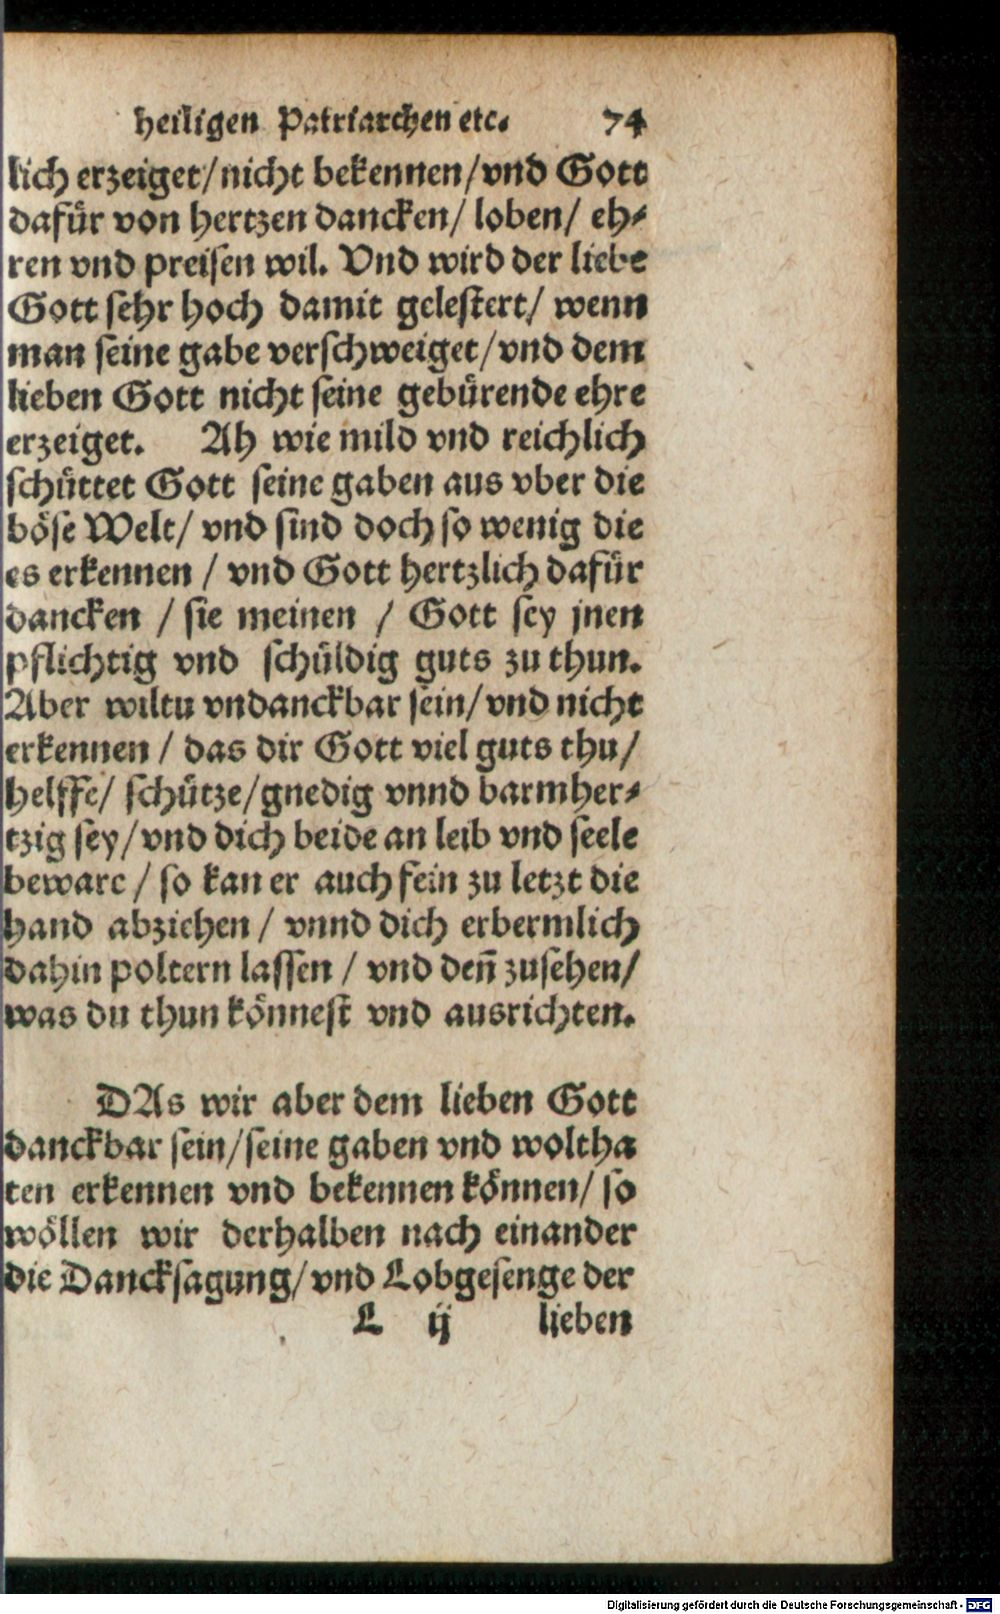 heiligen Patriarchen etc. 74
lich erzeiget/ nicht bekennen/ vnd Gott
dafür von hertzen dancken/ loben/ eh⸗
ren vnd preisen wil. Vnd wird der liebe
Gott sehr hoch damit gelestert/ wenn
man seine gabe verschweiget/ vnd dem
lieben Gott nicht seine gebürende ehre
erzeiget. Ah wie mild vnd reichlich
schüttet Gott seine gaben aus vber die
böse Welt/ vnd sind doch so wenig die
es erkennen / vnd Gott hertzlich dafür
dancken / sie meinen / Gott sey jnen
pflichtig vnd schüldig guts zu thun.
Aber wiltu vndanckbar sein/ vnd nicht
erkennen / das dir Gott viel guts thu/
helffe/ schütze/ gnedig vnnd barmher⸗
tzig sey/ vnd dich beide an leib vnd seele
beware / so kan er auch fein zu letzt die
hand abziehen / vnnd dich erbermlich
dahin poltern lassen / vnd deñ zusehen/
was du thun könnest vnd ausrichten.
DAs wir aber dem lieben Gott
danckbar sein/ seine gaben vnd woltha
ten erkennen vnd bekennen können/ so
wöllen wir derhalben nach einander
die Dancksagung/ vnd Lobgesenge der
L ij lieben
Digitalisierung gefördert durch die Deutsche Forschungsgemeinschaft - DFG